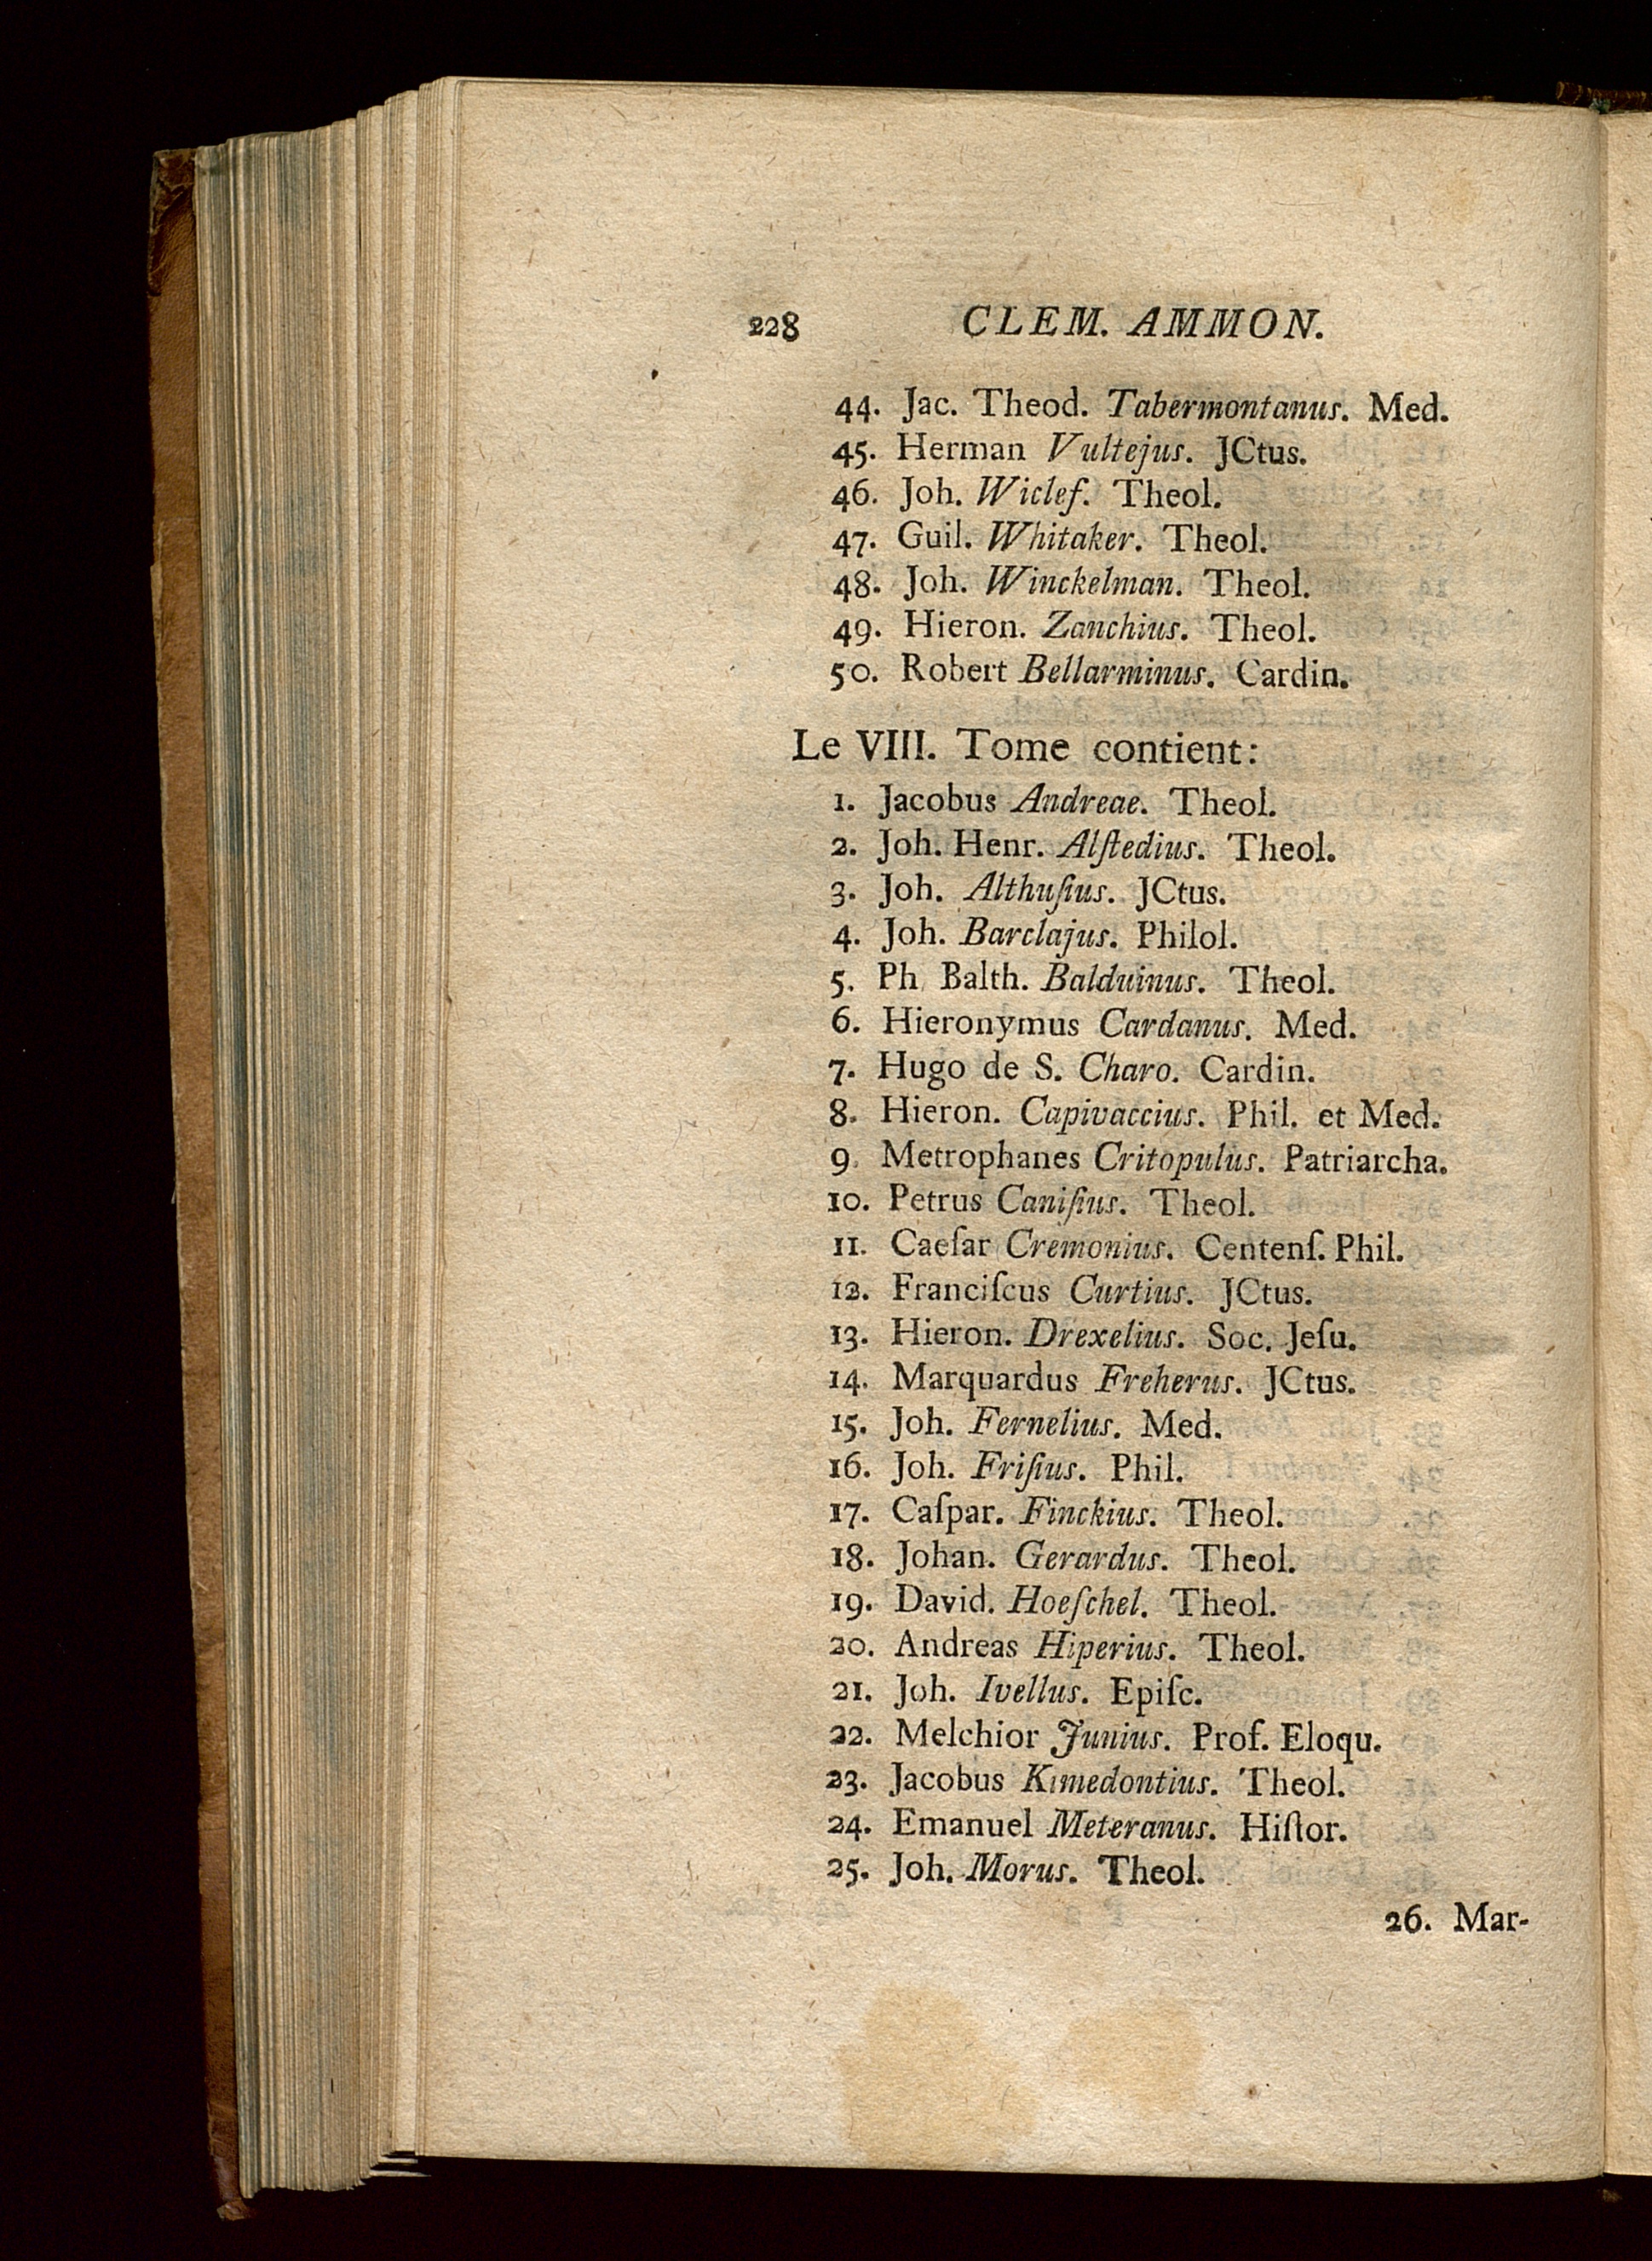 228 CLEM. AMMON.
44. Jac. Theod. Tabermontanus. Med.
45. Herman Vultejus. JCtus.
46. Joh. Wiclef. Theol.
47. Guil. Whitaker. Theol.
48. Joh. Winckelman. Theol.
49. Hieron. Zanchius. Theol.
50. Robert Bellarminus. Cardin.
Le VIII. Tome contient:
1. Jacobus Andreae. Theol.
2. Joh. Henr. Alſtedius. Theol.
3. Joh. Althuſius. JCtus.
4. Joh. Barclajus. Philol.
5. Ph. Balth. Balduinus. Theol.
6. Hieronymus Cardanus. Med.
7. Hugo de S. Charo. Cardin.
8. Hieron. Capivaccius. Phil. et Med.
9. Metrophanes Critopulus. Patriarcha.
10. Petrus Caniſius. Theol.
11. Caeſar Cremonius. Centenſ. Phil.
12. Franciſcus Curtius. JCtus.
13. Hieron. Drexelius. Soc. Jeſu.
14. Marquardus Freherus. JCtus.
15. Joh. Fernelius. Med.
16. Joh. Friſius. Phil.
17. Caſpar. Finckius. Theol.
18. Johan. Gerardus. Theol.
19. David. Hoeſchel. Theol.
20. Andreas Hiperius. Theol.
21. Joh. Ivellus. Epiſc.
22. Melchior Junius. Prof. Eloqu.
23. Jacobus Kimedontius. Theol.
24. Emanuel Meteranus. Hiſtor.
25. Joh. Morus. Theol.
26. Mar-